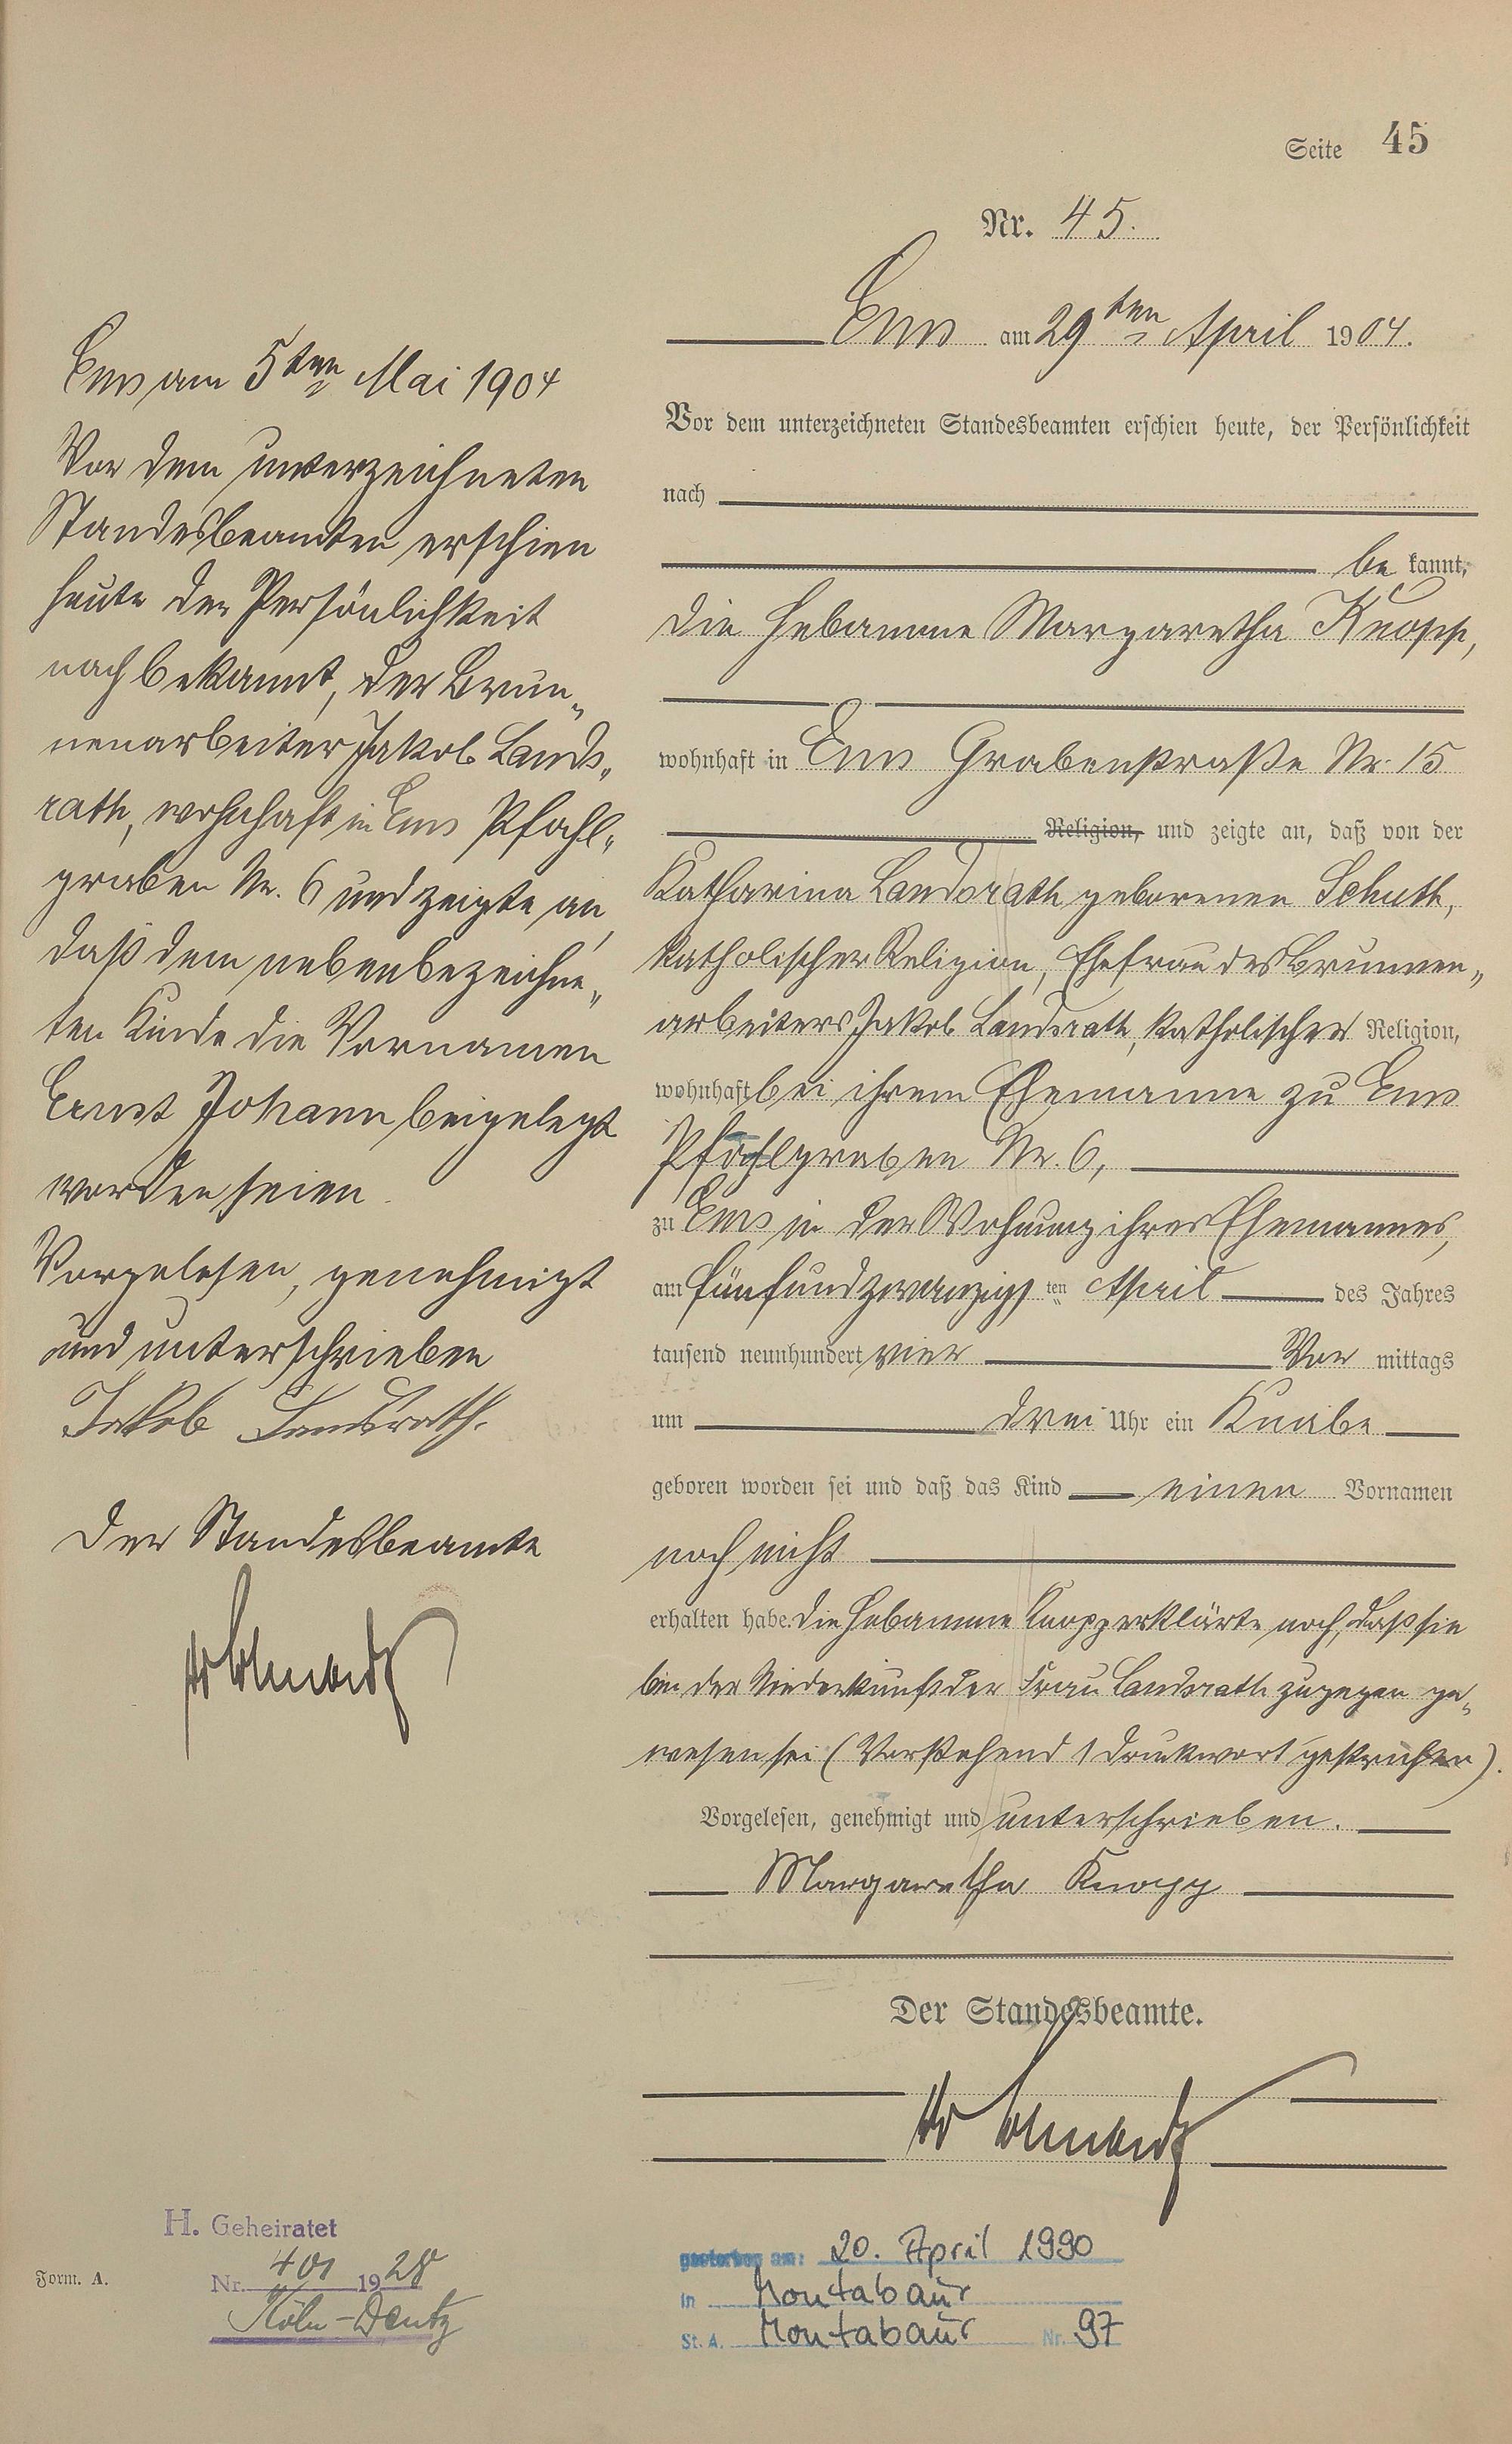 Seite 45
Nr. 45.
Ems am 29ten April 1904.
Vor dem unterzeichneten Standesbeamten erschien heute, der Persönlichkeit
nach
be kannt,
die Hebamme Margaretha Knopp,
wohnhaft in Ems Grabenstraße Nr. 15
Religion, und zeigte an, daß von der
Katharina Landsrath geborenen Schuth,
katholischer Religion, Ehefrau des Brunnen„
arbeiters Jakob Landsrath, katholischer Religion,
wohnhaft bei ihrem Ehemanne zu Ems
Pfahlgraben Nr. 6,
zu Ems in der Wohnung ihres Ehemannes,
am fünfundzwanzigsten April des Jahres
tausend neunhundert vier Vor mittags
um drei Uhr ein Knabe
geboren worden sei und daß das Kind einen Vornamen
noch nicht
erhalten habe. Die Hebamme Knopp erklärte noch, daß sie
bei der Niederkunft der Frau Landsrath zugegen ge„
wesen sei (Vorstehend 1 Druckwort gestrichen).
Vorgelesen, genehmigt und unterschrieben.
Margaretha Knopp
Der Standesbeamte.
Ems am 5ten Mai 1904
Vor dem unterzeichneten
Standesbeamten erschien
heute der Persönlichkeit
nach bekannt, der Brun„
nenarbeiter Jakob Lands„
rath, wohnhaft in Ems Pfahl„
graben Nr. 6 und zeigte an,
daß dem nebenbezeichne„
ten Kinde die Vornamen
Ernst Johann beigelegt
worden seien.
Vorgelesen, genehmigt
und unterschrieben
Jakob Landsrath.
Der Standesbeamte
H. Geheiratet
Nr. 401 1928
Köln-Deutz
Form. A.
gestorben am: 20. April 1990
in Montabaur
St. A. Montabaur Nr. 97